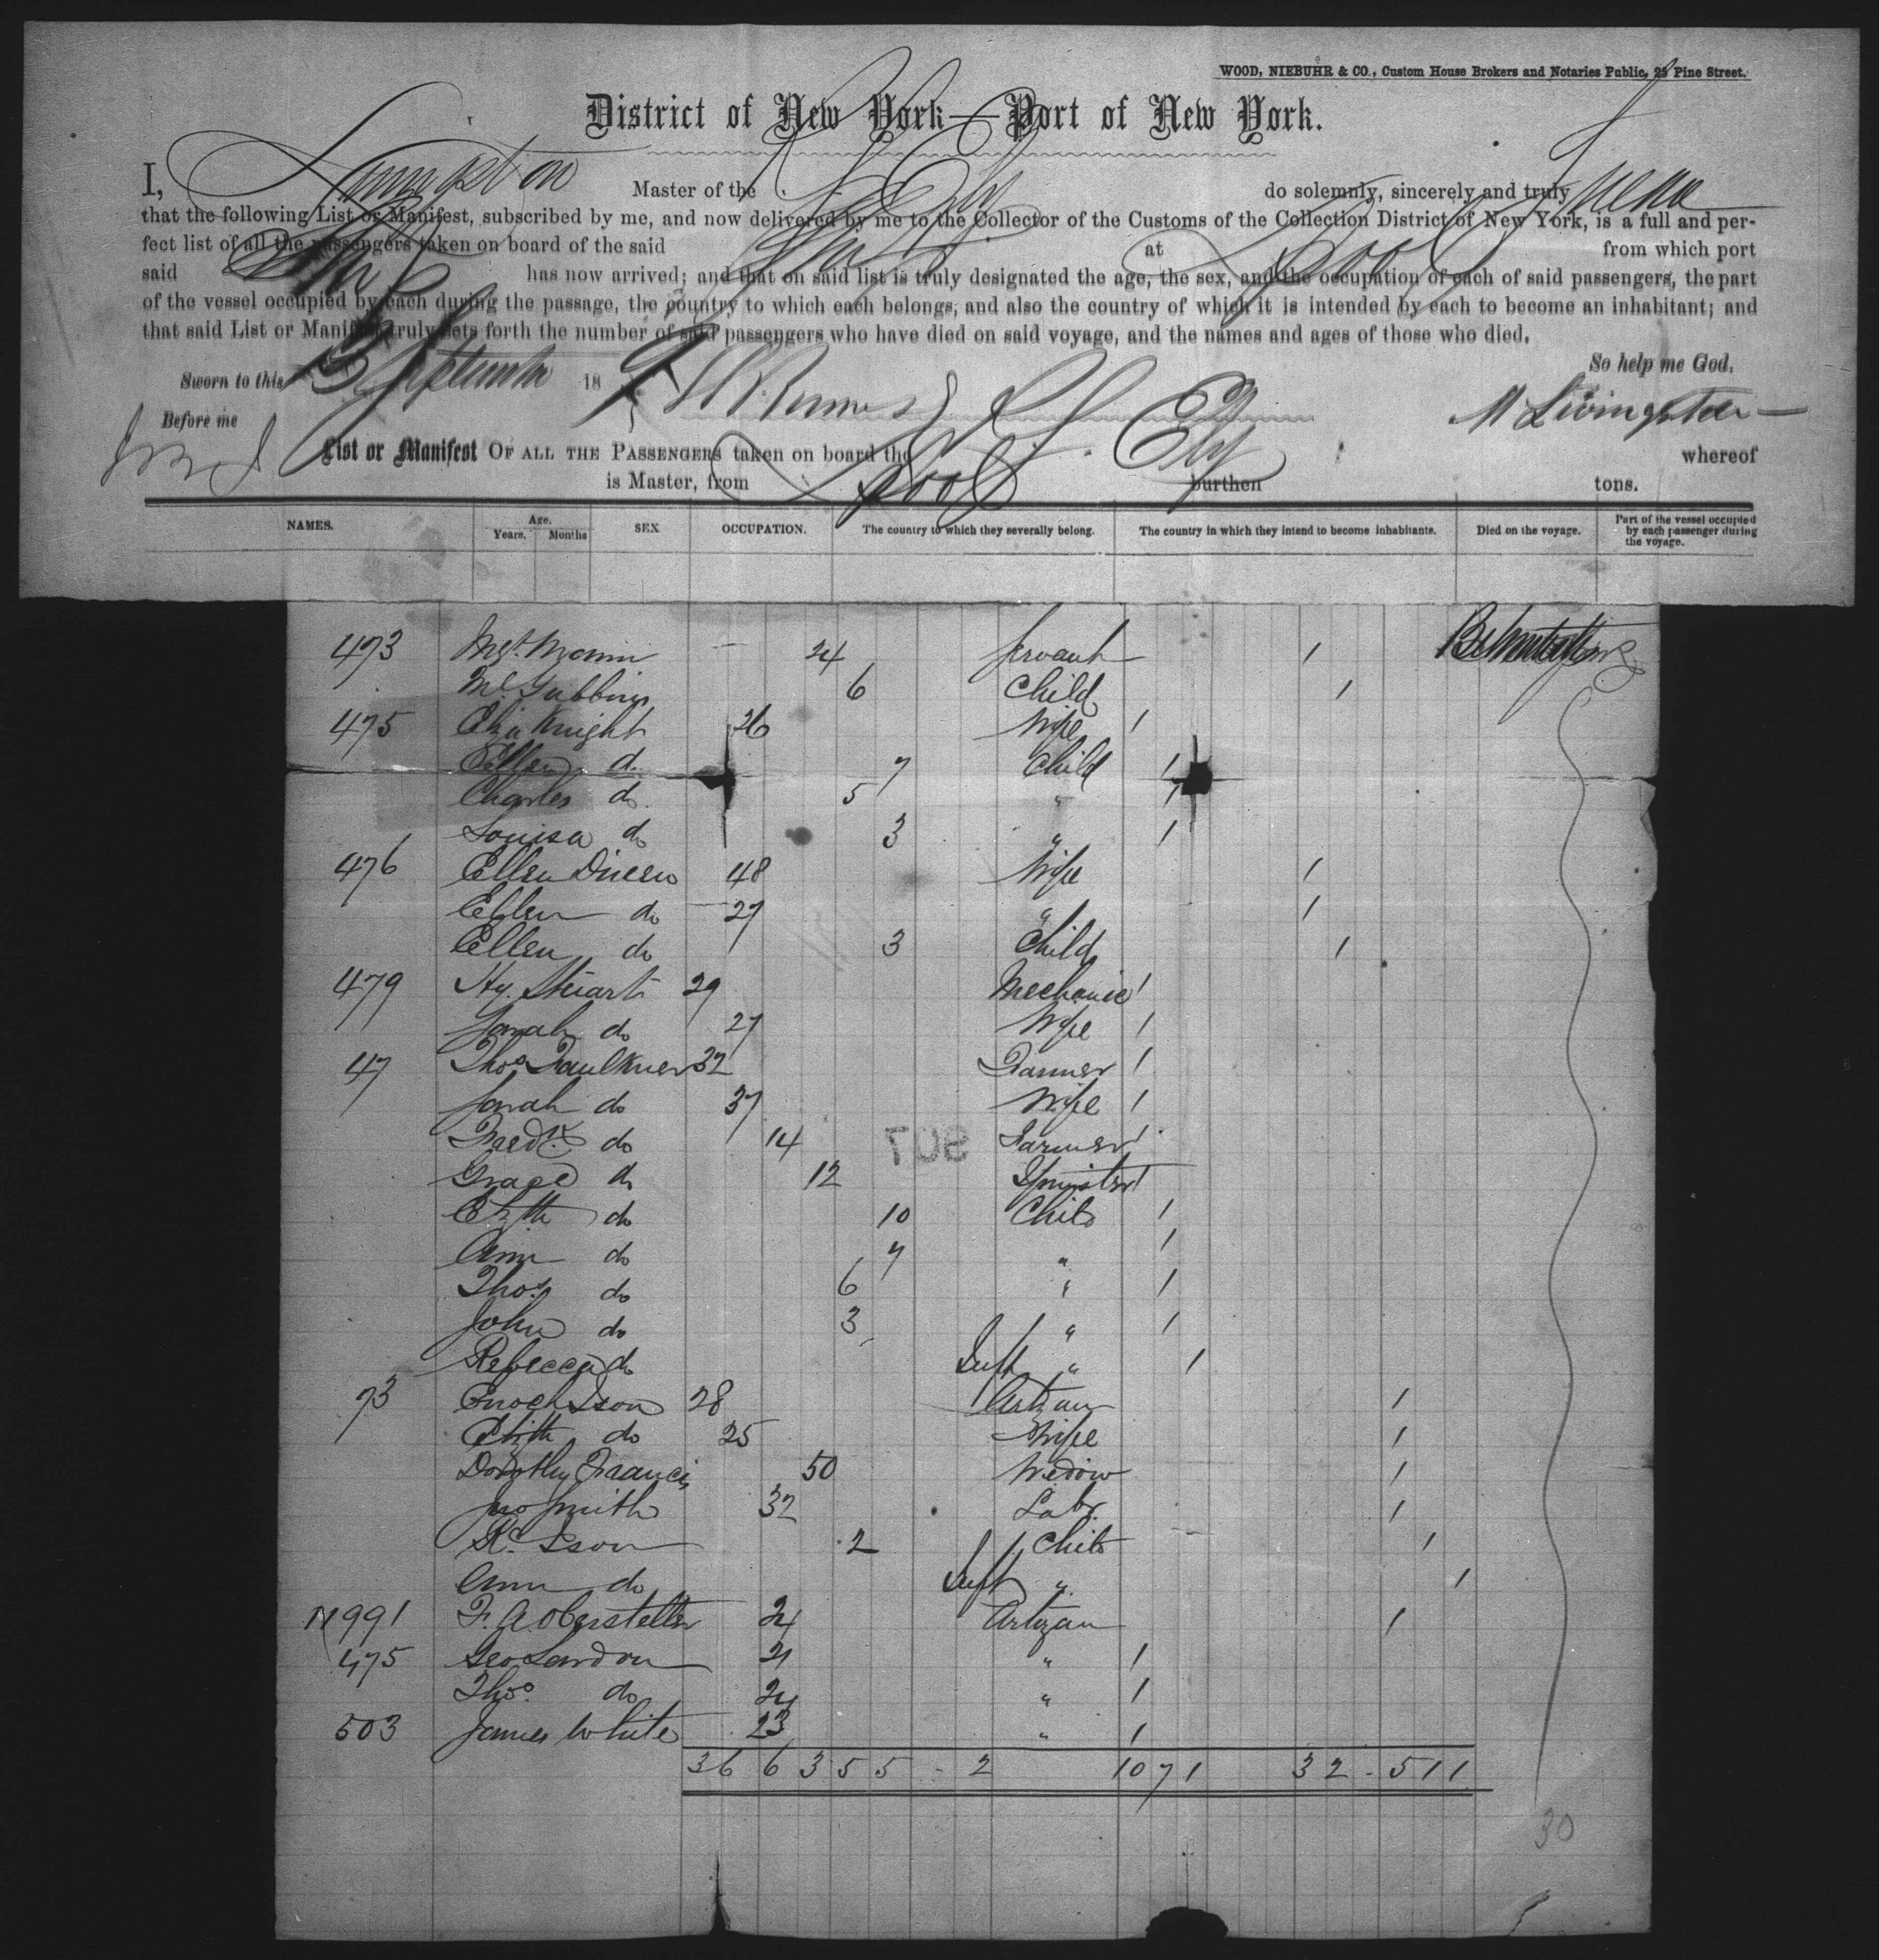 WOOD, NIEBUHR & CO., Custom House Brokers and Notaries Public, 25 Pine Street.
District of New York—Port of New York.
I, Master of the do solemnly, sincerely and truly
that the following List or Manifest, subscribed by me, and now delivered by me to the Collector of the Customs of the Collection District of New York, is a full and per-
fect list of all the passengers taken on board of the said at from which port
said has now arrived; and that on said list is truly designated the age, the sex, and the occupation of each of said passengers, the part
of the vessel occupied by each during the passage, the country to which each belongs, and also the country of which it is intended by each to become an inhabitant; and
that said List or Manifest truly sets forth the number of said passengers who have died on said voyage, and the names and ages of those who died.
So help me God.
Sworn to this September 18
Before me
M Livingston
List or Manifest OF ALL THE PASSENGERS taken on board the whereof
is Master, from burthen tons.
NAMES. Age. Years. Months SEX OCCUPATION. The country to which they severally belong. The country in which they intend to become inhabitants. Died on the voyage. Part of the vessel occupied by each passenger during the voyage.
473 Mgt 24 Servant 1
6 Child 1
475 Eliza Knight 26 Wife 1
Ellen d. 7 Child 1
Charles do. 5 " 1
Louisa do 3 " 1
476 Ellen Dineen 48 Wife 1
Ellen do 27 " 1
Ellen do 3 Child 1
479 Hy. Stuart 29 Mechanic 1
Sarah do 27 Wife 1
47 Thos Faulkner 32 Farmer 1
Sarah do 37 Wife 1
Fredk do 14 Farmer 1
Grace do 12 Spinster 1
Elizth do 10 Child 1
Ann do 7 " 1
Thos do 6 " 1
John do 3 " 1
Rebecca do Inft " 1
73 Enoch Ison 28 Artzan 1
Elizth do 25 Wife 1
Dorothy Francis 50 Widow 1
Jno Smith 32 Labr. 1
Rd. Ison 2 Child 1
Ann do Inft " 1
991 F. A. Oberstetter 24 Artizan 1
475 Geo Landon 21 " 1
Thos. do 24 " 1
503 James White 23 " 1
3 6 6 3 5 5 - 2 10 7 1 3 2 - 5 1 1
30